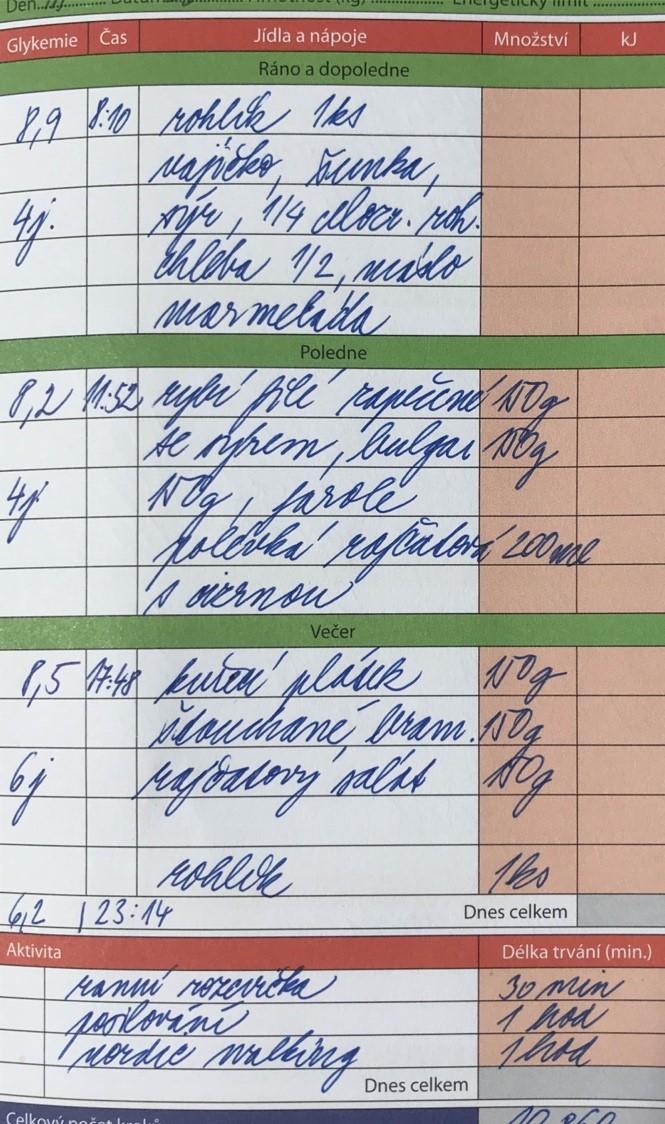 Den Datum Hmotnost (kg) Energetický limit
Glykemie Čas Jídla a nápoje Množství kJ
Ráno a dopoledne
8,9 8:10 rohlík 1ks
vajíčko, šunka,
4j. sýr, 1/4 Mozz. roh.
chleba 1/2, máslo
marmeláda
Poledne
8,2 11:52 rybí filé zapečené 150g
se sýrem, bulgur 150g
4j 150g, fazole
polévka rajčatová 200ml
s cizrnou
Večer
8,5 17:48 kuřecí plátek 150g
šťouchané bram. 150g
6j rajčatový salát 150g
rohlík 1ks
6,2 23:14 Dnes celkem
Aktivita Délka trvání (min.)
ranní rozcvička 30 min
posilování 1 hod
nordic walking 1 hod
Dnes celkem
Celkový počet kroků